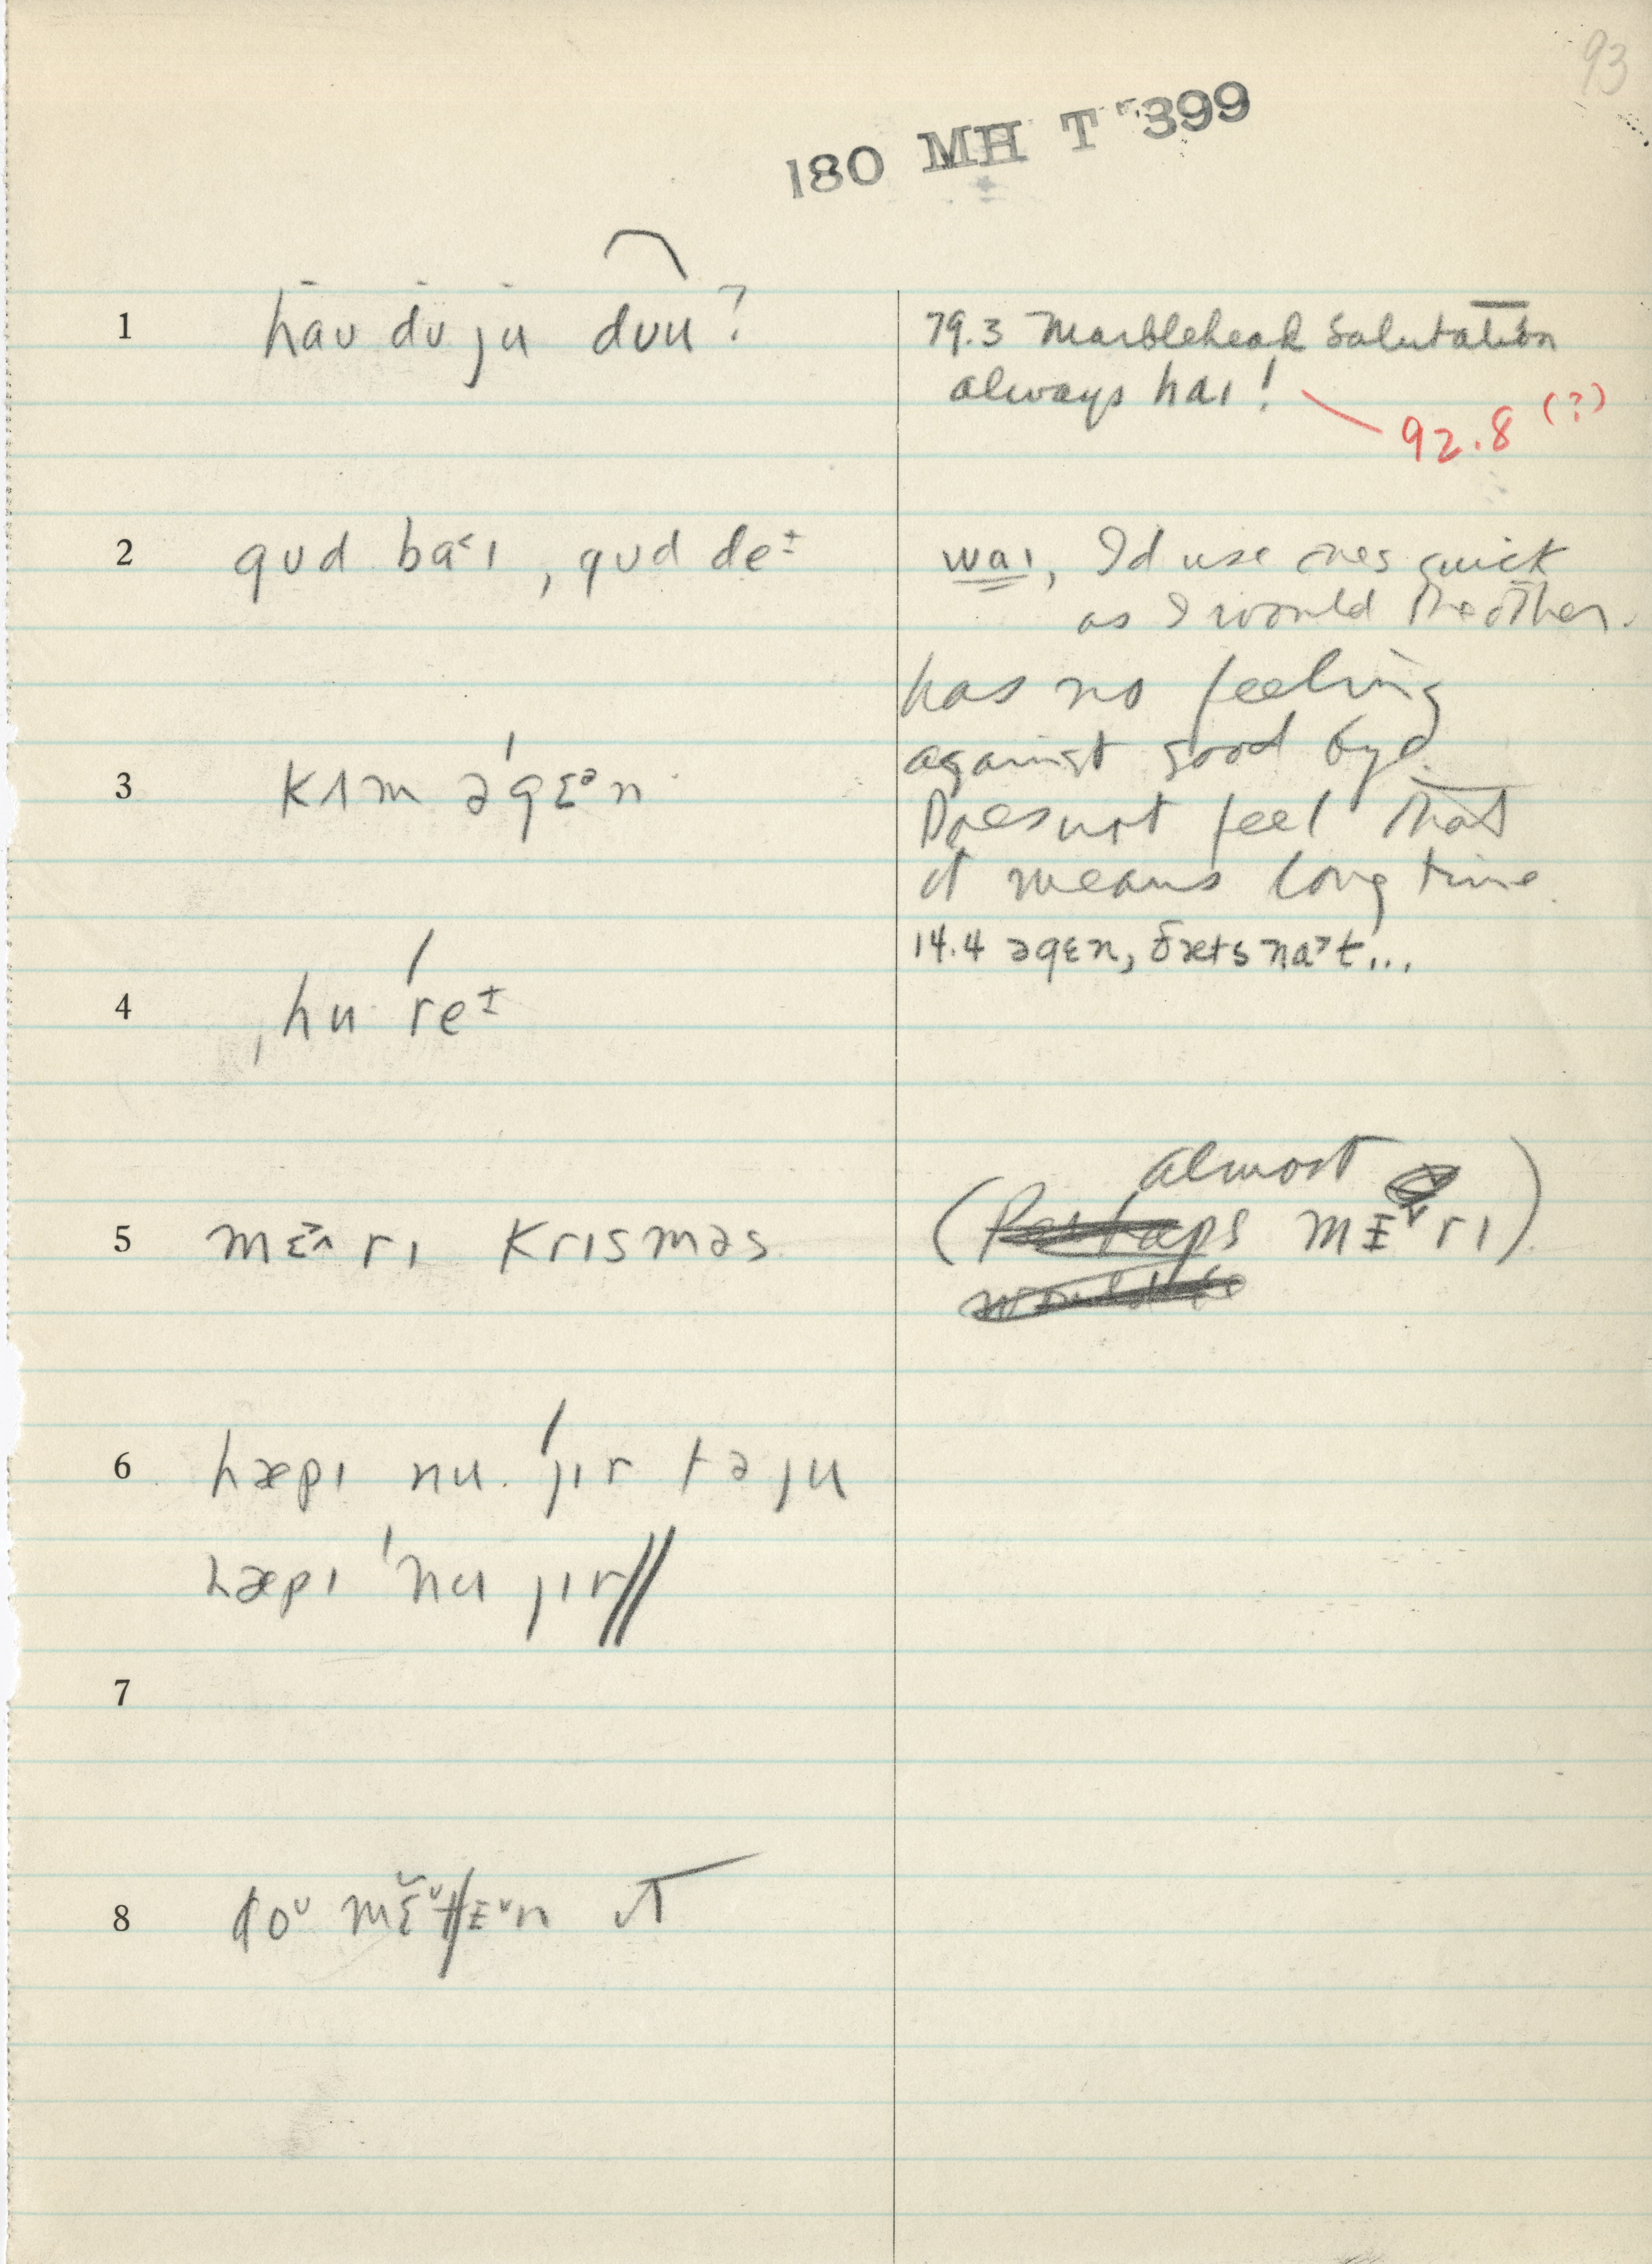 93
180 MH T 399
1 haʊ dʊ ju dʊu?
79.3 Marblehead Salutation
always haɪ!
92.8 (?)
2 gʊd ba˂ɪ, gʊd deᶧ
waɪ, I'd use ones quick
as I would the other.
has no feeling
against good bye.
Does not feel that
it means long time.
3 kʌm əˈgɛᵊn
14.4 əgɛn, ðæts na˃t...
4 ˌhuˈreᶧ
5 mɛ˃^rɪ krɪsməs
(almost mᵻ˅rɪ)
6 hæpɪ nu ˈjɪr tə ju
hæpɪ ˈnu jɪr//
7
8